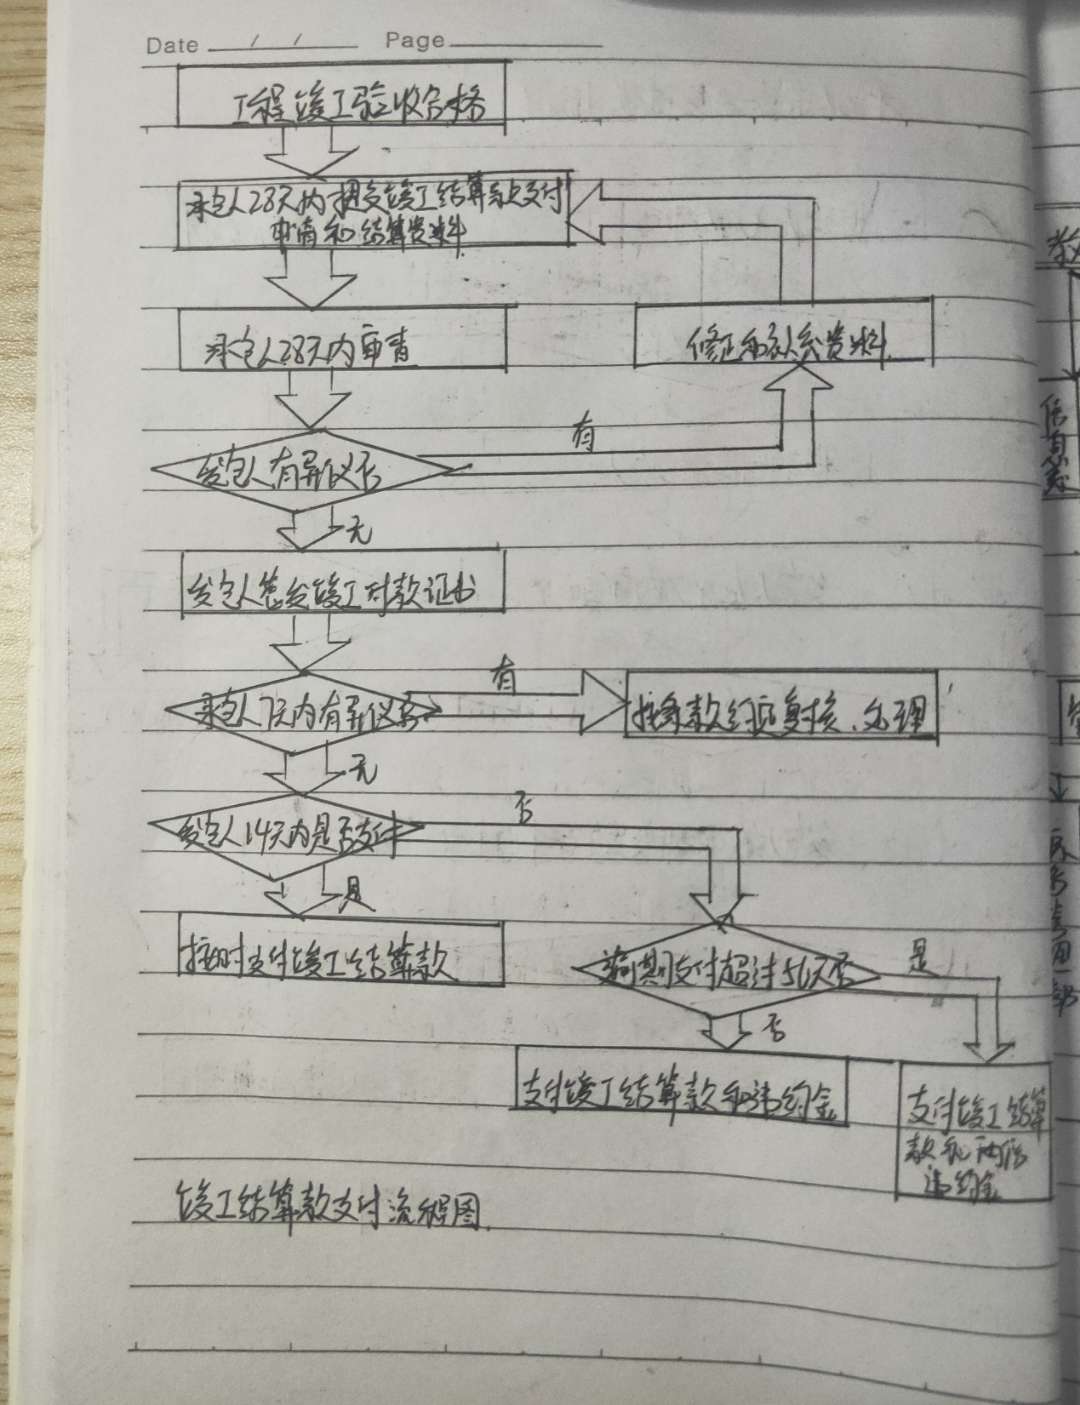 Date / / Page
工程竣工验收合格
承包人28天内提交竣工结算款支付
申请和结算资料
承包人28天内审查
修正和补充资料
有
发包人有异议否
无
发包人签发竣工付款证书
有
承包人7天内有异议否
按条款约定复核、处理
无
否
发包人14天内是否支付
是
按时支付竣工结算款
逾期支付超过56天否
是
否
支付竣工结算款和违约金
支付竣工结算
款和两倍
违约金
竣工结算款支付流程图